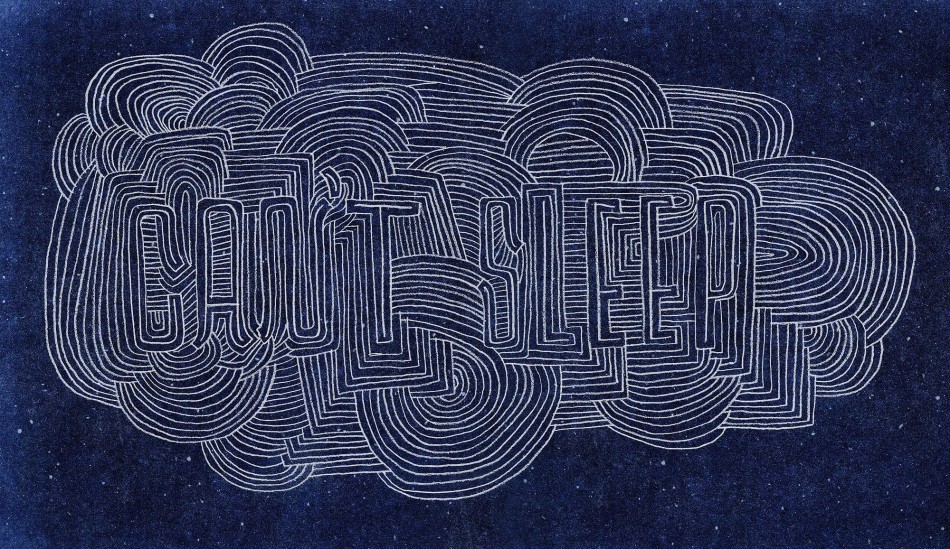 CAN'T SLEEP